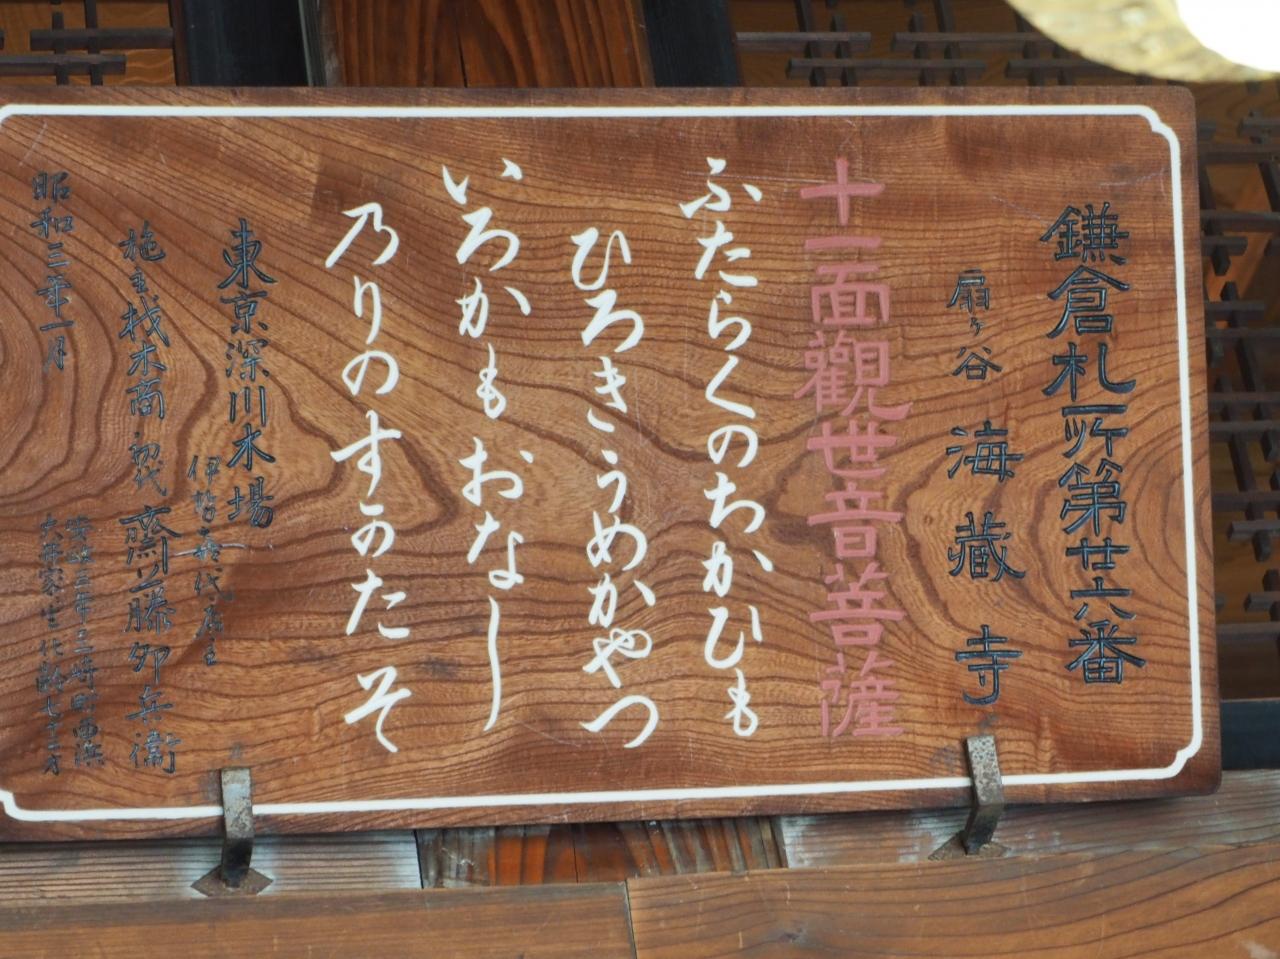 鎌倉札所第廿六番
扇ヶ谷 海藏寺
十一面觀世音菩薩
ふたらくのちかひも
ひろきうめかやつ
いろかもおなし
乃りのすかたそ
東京深川木場
伊勢喜代店主
施主材木商 初代 齋藤卯兵衛
昭和三年一月